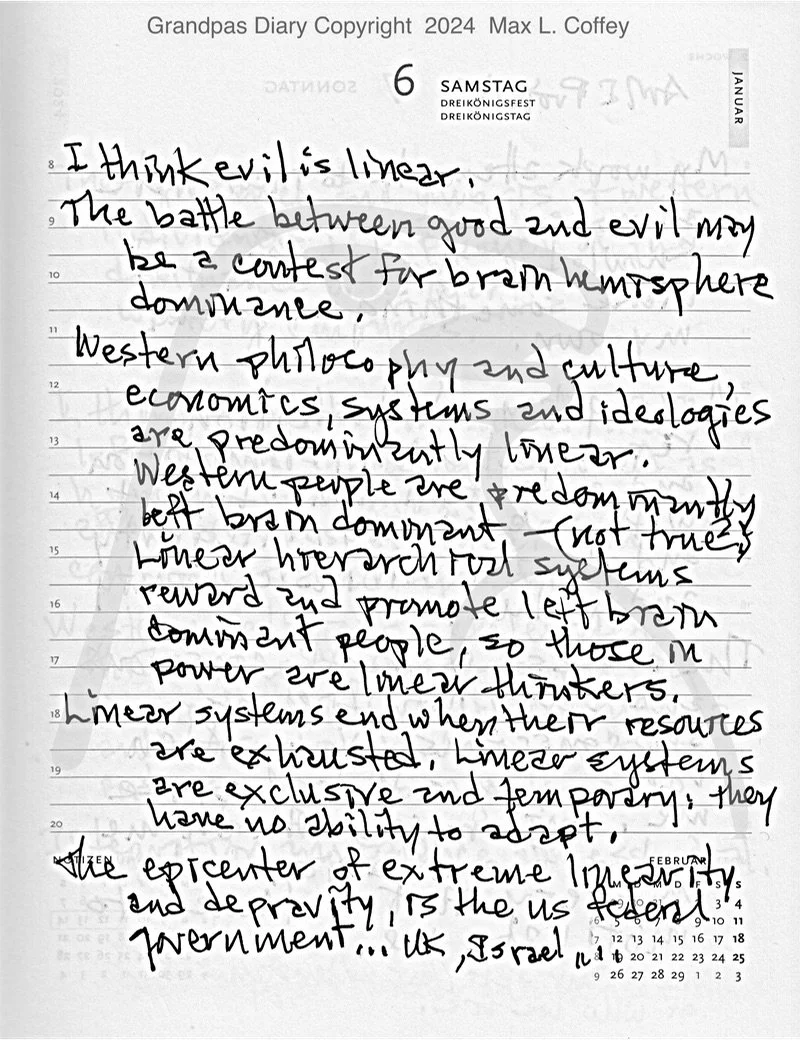 Grandpas Diary Copyright 2024 Max L. Coffey
6 SAMSTAG
DREIKÖNIGSFEST
DREIKÖNIGSTAG
JANUAR
8 I think evil is linear.
9 The battle between good and evil may
be a contest for brain hemisphere
10
dominance.
11 Western philocophy and culture,
12 economics, systems and ideologies
13 are predominantly linear.
Western people are predominantly
14 left brain dominant – (not true?)
15 Linear hierarchical systems
reward and promote left brain
16
dominant people, so those in
17 power are linear thinkers.
18 Linear systems end when their resources
are exhausted. Linear systems
19
are exclusive and temporary; they
20 have no ability to adapt.
NOTIZEN
FEBRUAR
the epicenter of extreme linearity
M D M D F S S
and depravity, is the us federal
3 4
government... UK, Israel
5 6 7 8 9 10 11
7 12 13 14 15 16 17 18
19 20 21 22 23 24 25
9 26 27 28 29 1 2 3